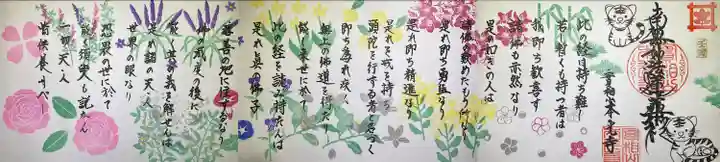 南無妙法蓮華経
此の経は持ち難し
若し暫くも持つ者は
我即ち歓喜す
諸仏も亦然なり
是の如きの人は
諸仏の歎めたもう所なり
是れ則ち勇猛なり
是れ則ち精進なり
是れを戒を持ち
頭陀を行ずる者と名づく
則ち為れ疾く
無上の仏道を得たり
能く来世に於て
此の経を読み持たんは
是れ真の仏子
淳善の地に住するなり
仏の滅度の後に
能く其の義を解せんは
是れ諸の天人
世間の眼なり
恐畏の世に於て
能く須臾も説かんは
一切の天人
皆供養すべし